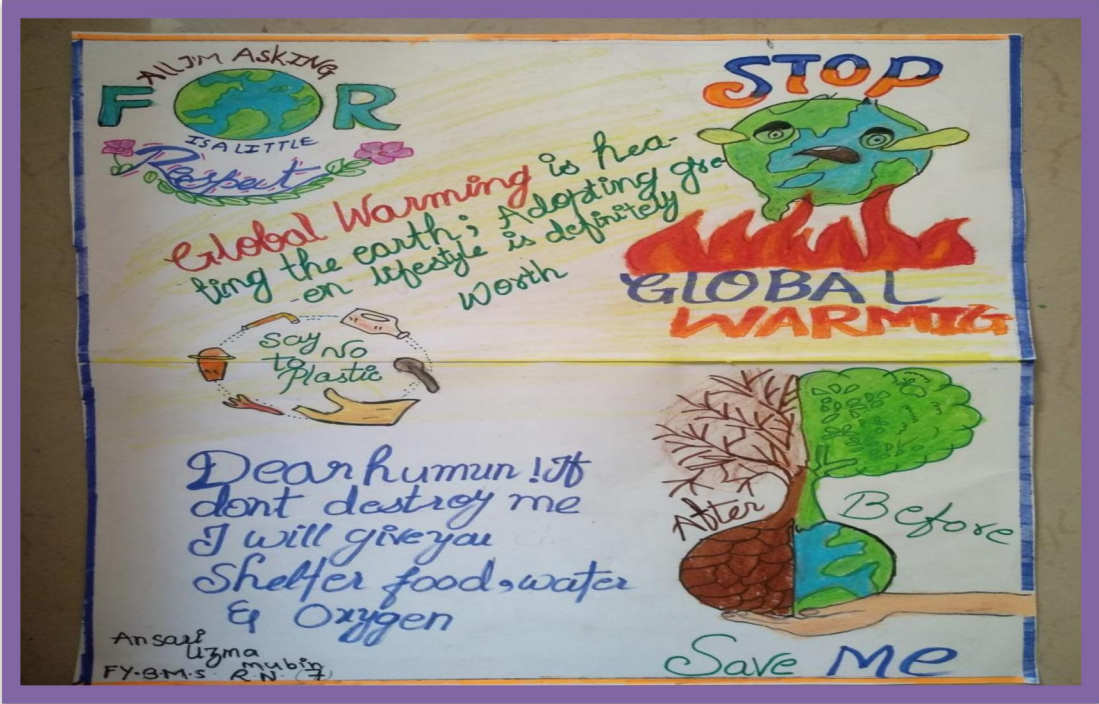 ALL I'M ASKING
FOR
IS A LITTLE
Respect
STOP
GLOBAL
WARMIG
Global Warming is hea-
ting the earth; Adopting gre-
-en lifestyle is definitely
Worth
Say No
to
Plastic
Dear humun ! If
dont destroy me
I will give you
Shelter food, water
& Oxygen
After
Before
Save Me
Ansari
Uzma
Mubin
F.Y.B.M.S R.N. (7)